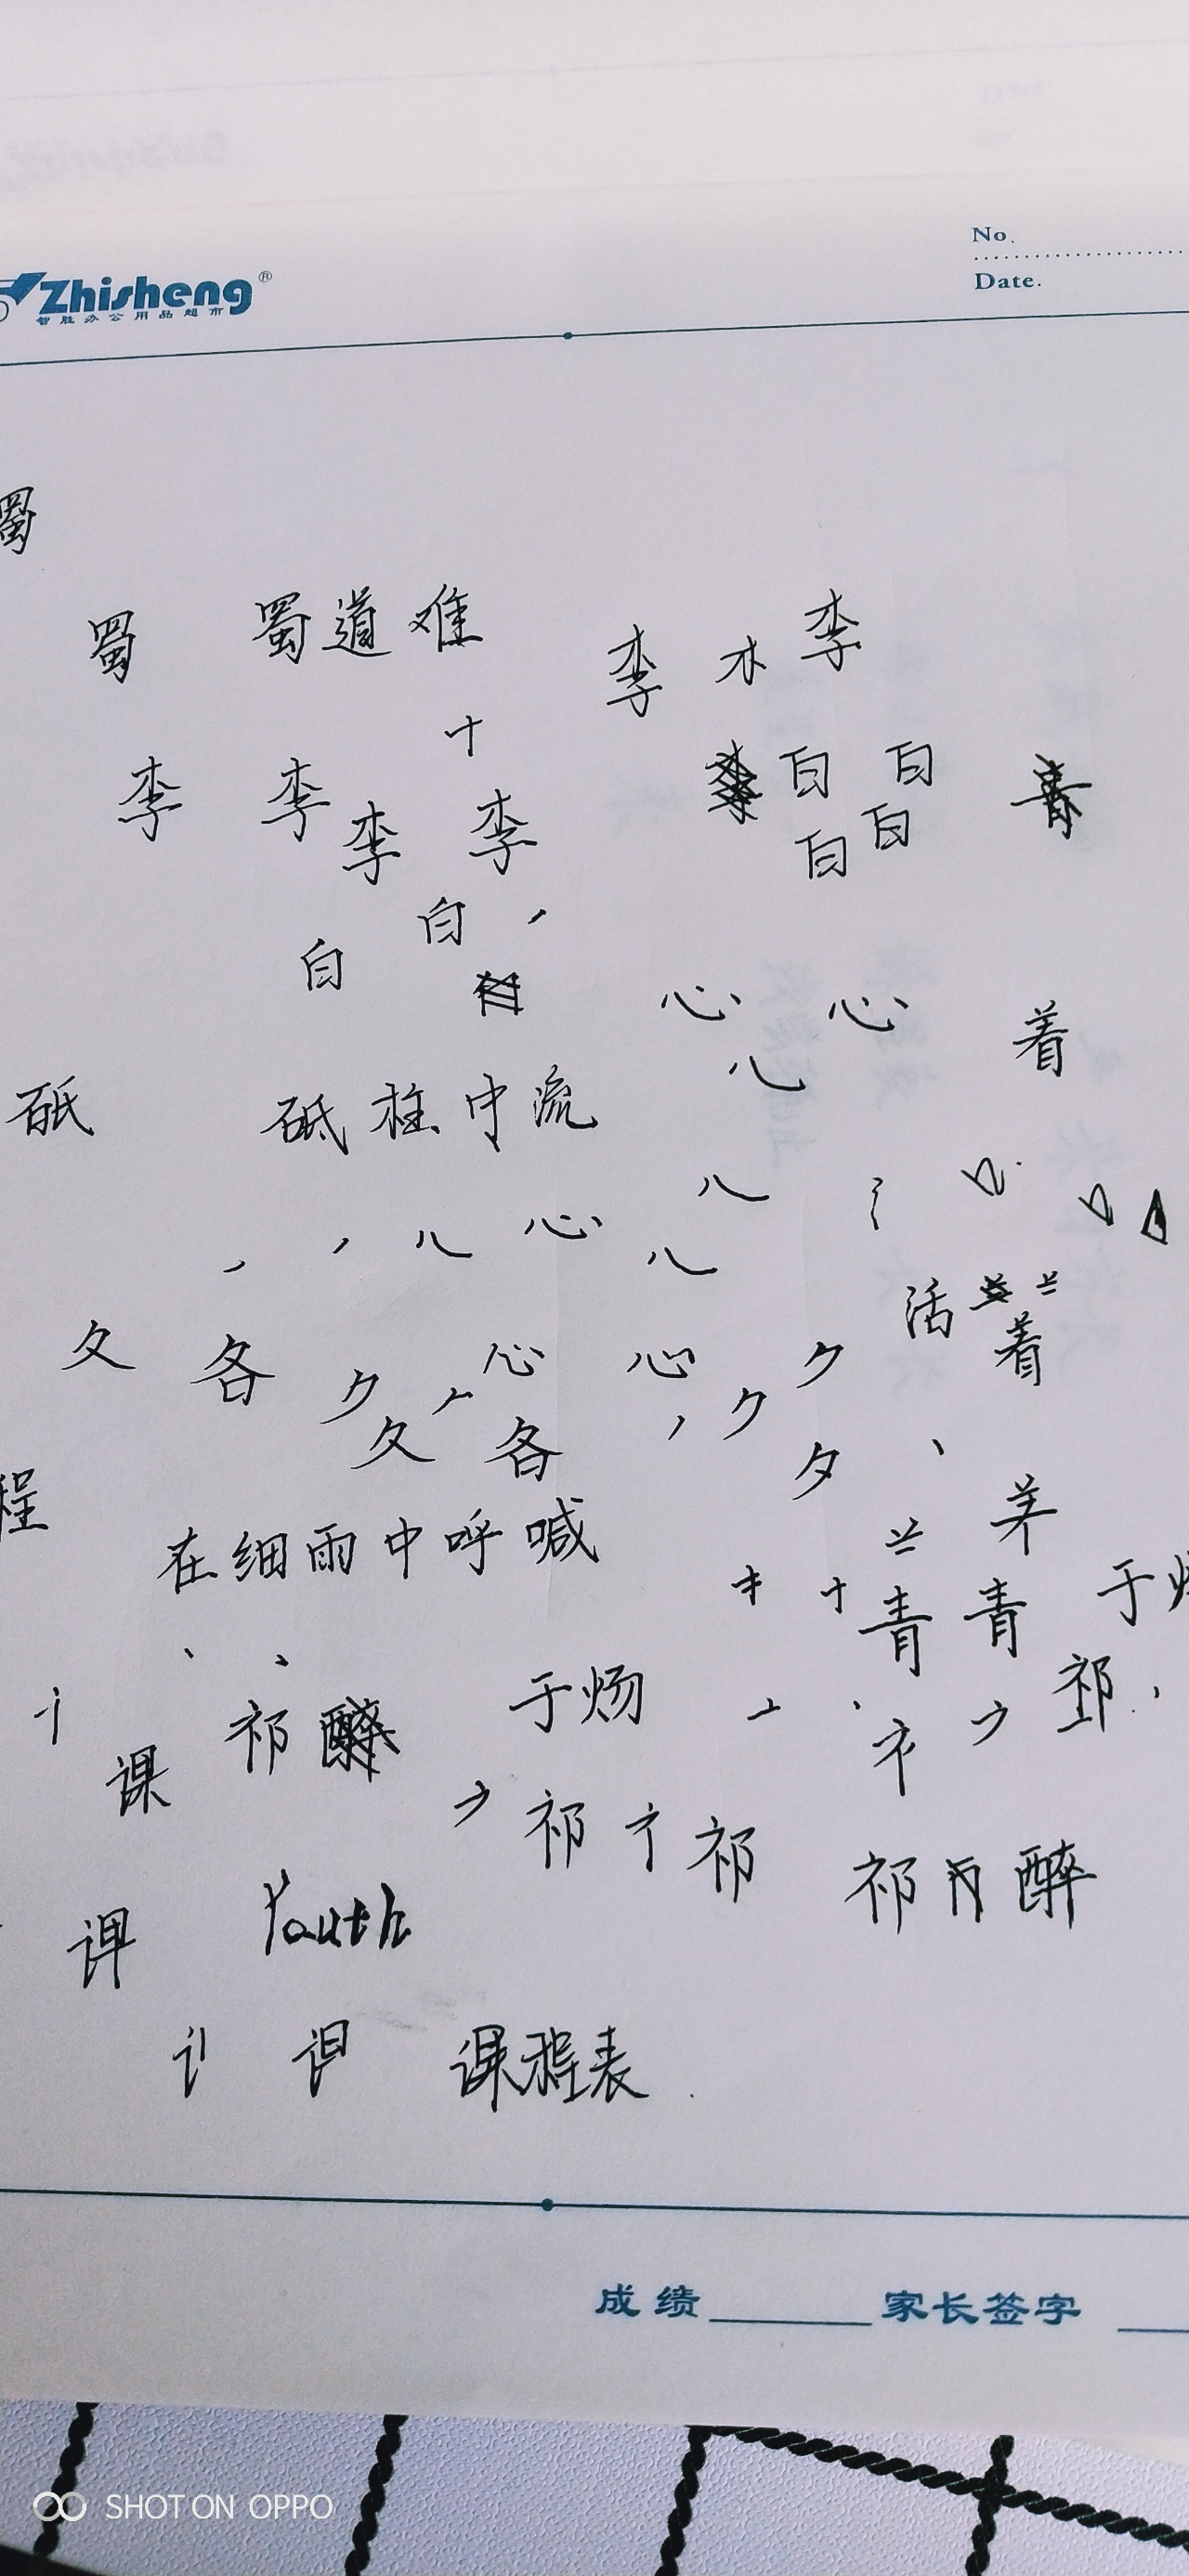 No.
Zhisheng®
智胜办公用品超市
Date.
蜀
蜀 蜀道难
李 木 李
十
李 李 李 李
白 白
白 白
青
白 白
心 心 着
心
砥 砥柱中流
心
活 着
夂 各 夕 心 心 夕
夂 各 夕
夕
程
在细雨中呼喊
羊
十 青 青 于
祁 于炀 礻 祁
课 祁 祁 祁 醉
Youth
课程表
成绩 家长签字
SHOT ON OPPO